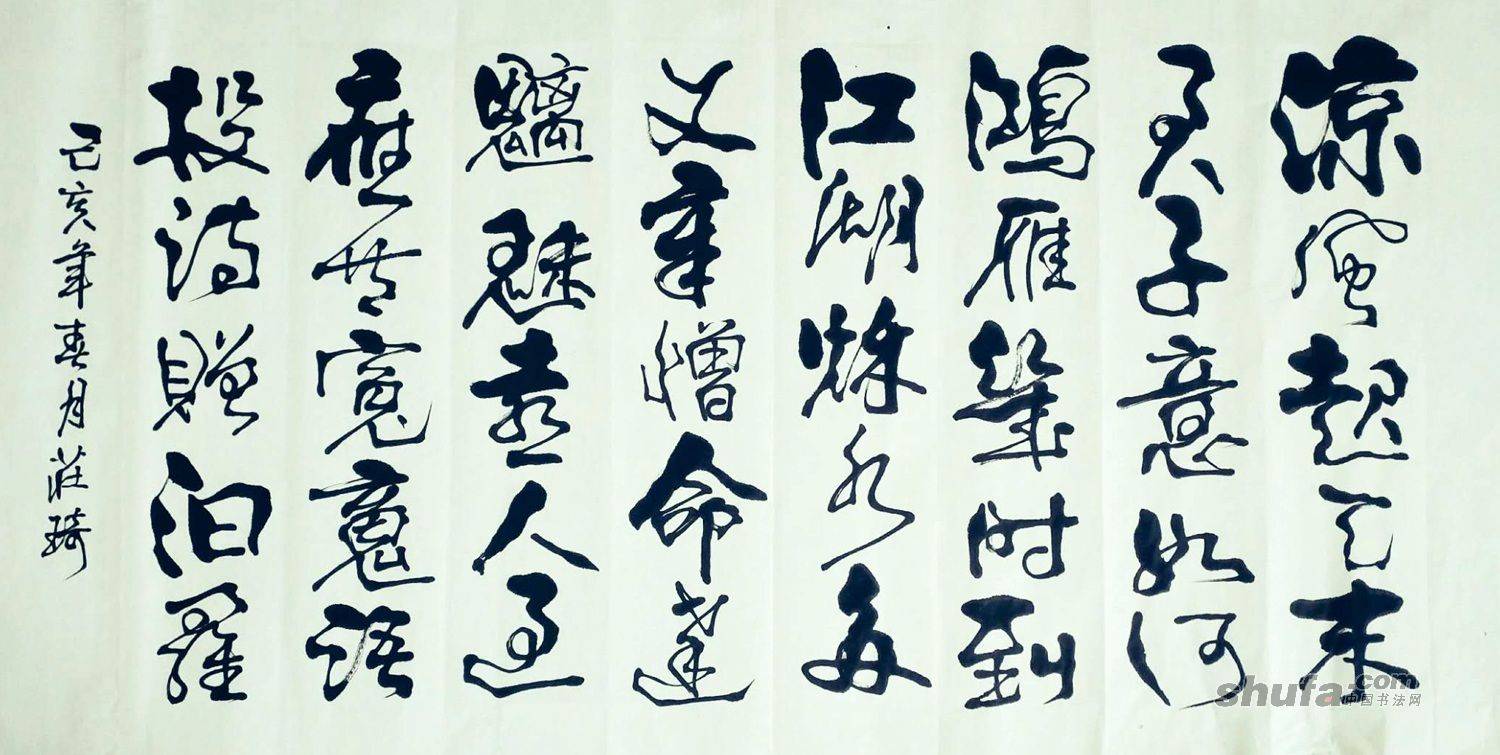 凉風起天末
君子意如何
鴻雁幾时到
江湖秌水多
文章憎命達
魑魅喜人過
應共冤䰟語
投詩贈汨羅
己亥年春月莊琦
shufa.com
中国书法网